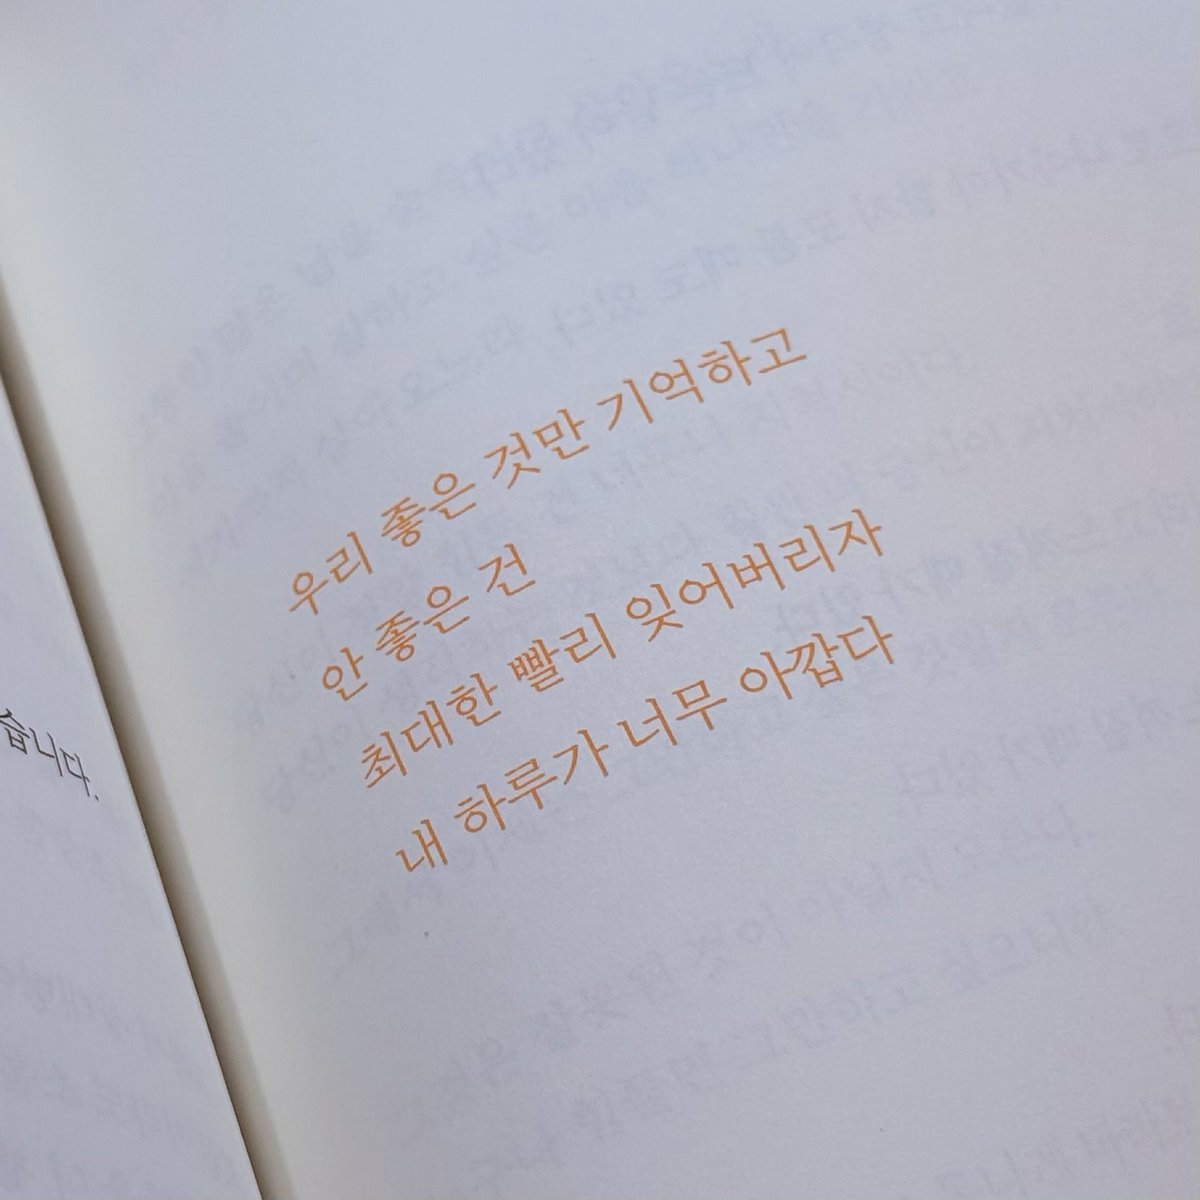 습니다.
우리 좋은 것만 기억하고
안 좋은 건
최대한 빨리 잊어버리자
내 하루가 너무 아깝다